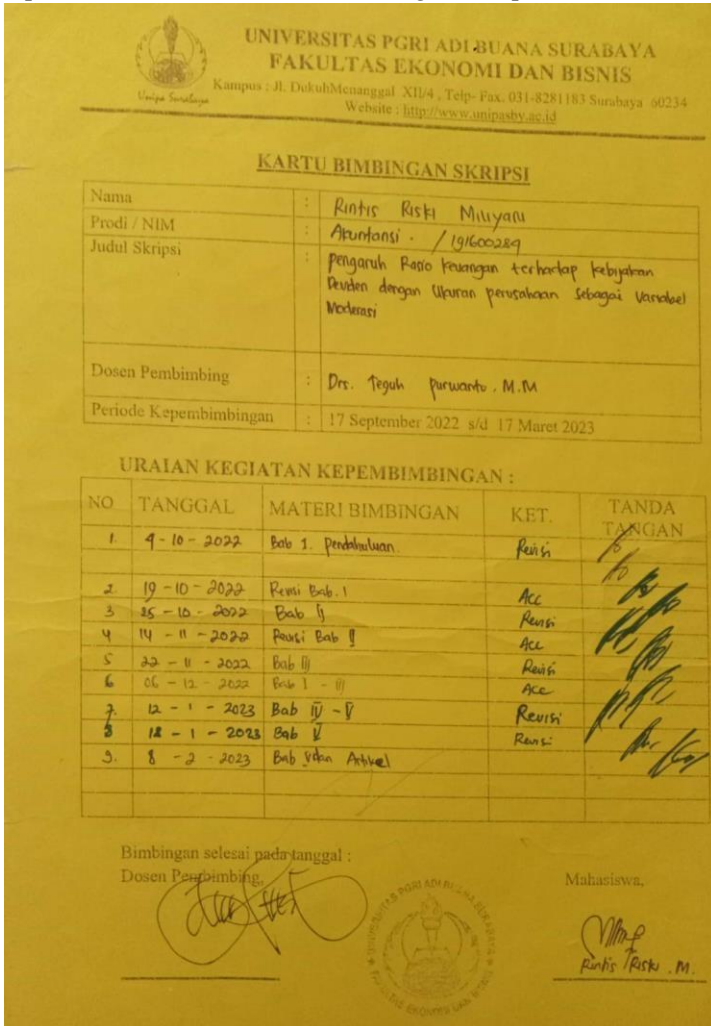 UNIVERSITAS PGRI ADI BUANA SURABAYA
FAKULTAS EKONOMI DAN BISNIS
Kampus : Jl. DukuhMenanggal XII/4 , Telp- Fax. 031-8281183 Surabaya 60234
Website : http://www.unipasby.ac.id
Unipa Surabaya
KARTU BIMBINGAN SKRIPSI
Nama : Rintis Riski Miliyani
Prodi / NIM : Akuntansi . / 191600289
Judul Skripsi : Pengaruh Rasio keuangan terhadap kebijakan
Deviden dengan Ukuran perusahaan Sebagai Variabel
Moderasi
Dosen Pembimbing : Drs. Teguh purwanto . M.M
Periode Kepembimbingan : 17 September 2022 s/d 17 Maret 2023
URAIAN KEGIATAN KEPEMBIMBINGAN :
NO TANGGAL MATERI BIMBINGAN KET. TANDA TANGAN
1. 4 - 10 - 2022 Bab 1. Pendahuluan Revisi
2. 19 - 10 - 2022 Revisi Bab. I Acc
3 25 - 10 - 2022 Bab II Revisi
4 14 - 11 - 2022 Revisi Bab II Acc
5 22 - 11 - 2022 Bab III Revisi
6 06 - 12 - 2022 Bab I - III Acc
7. 12 - 1 - 2023 Bab IV - V Revisi
8 18 - 1 - 2023 Bab V Revisi
9. 8 - 2 - 2023 Bab V dan Artikel
Bimbingan selesai pada tanggal :
Dosen Pembimbing,
Mahasiswa,
UNIVERSITAS PGRI ADI BUANA SURABAYA
FAKULTAS EKONOMI DAN BISNIS
Rintis Riski . M.